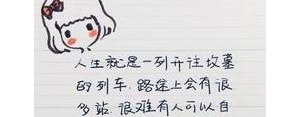 人生就是一列开往坟墓
的列车,路途上会有很
多站,很难有人可以自